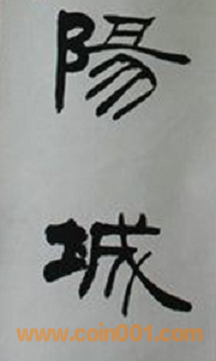 陽城
www.coin001.com